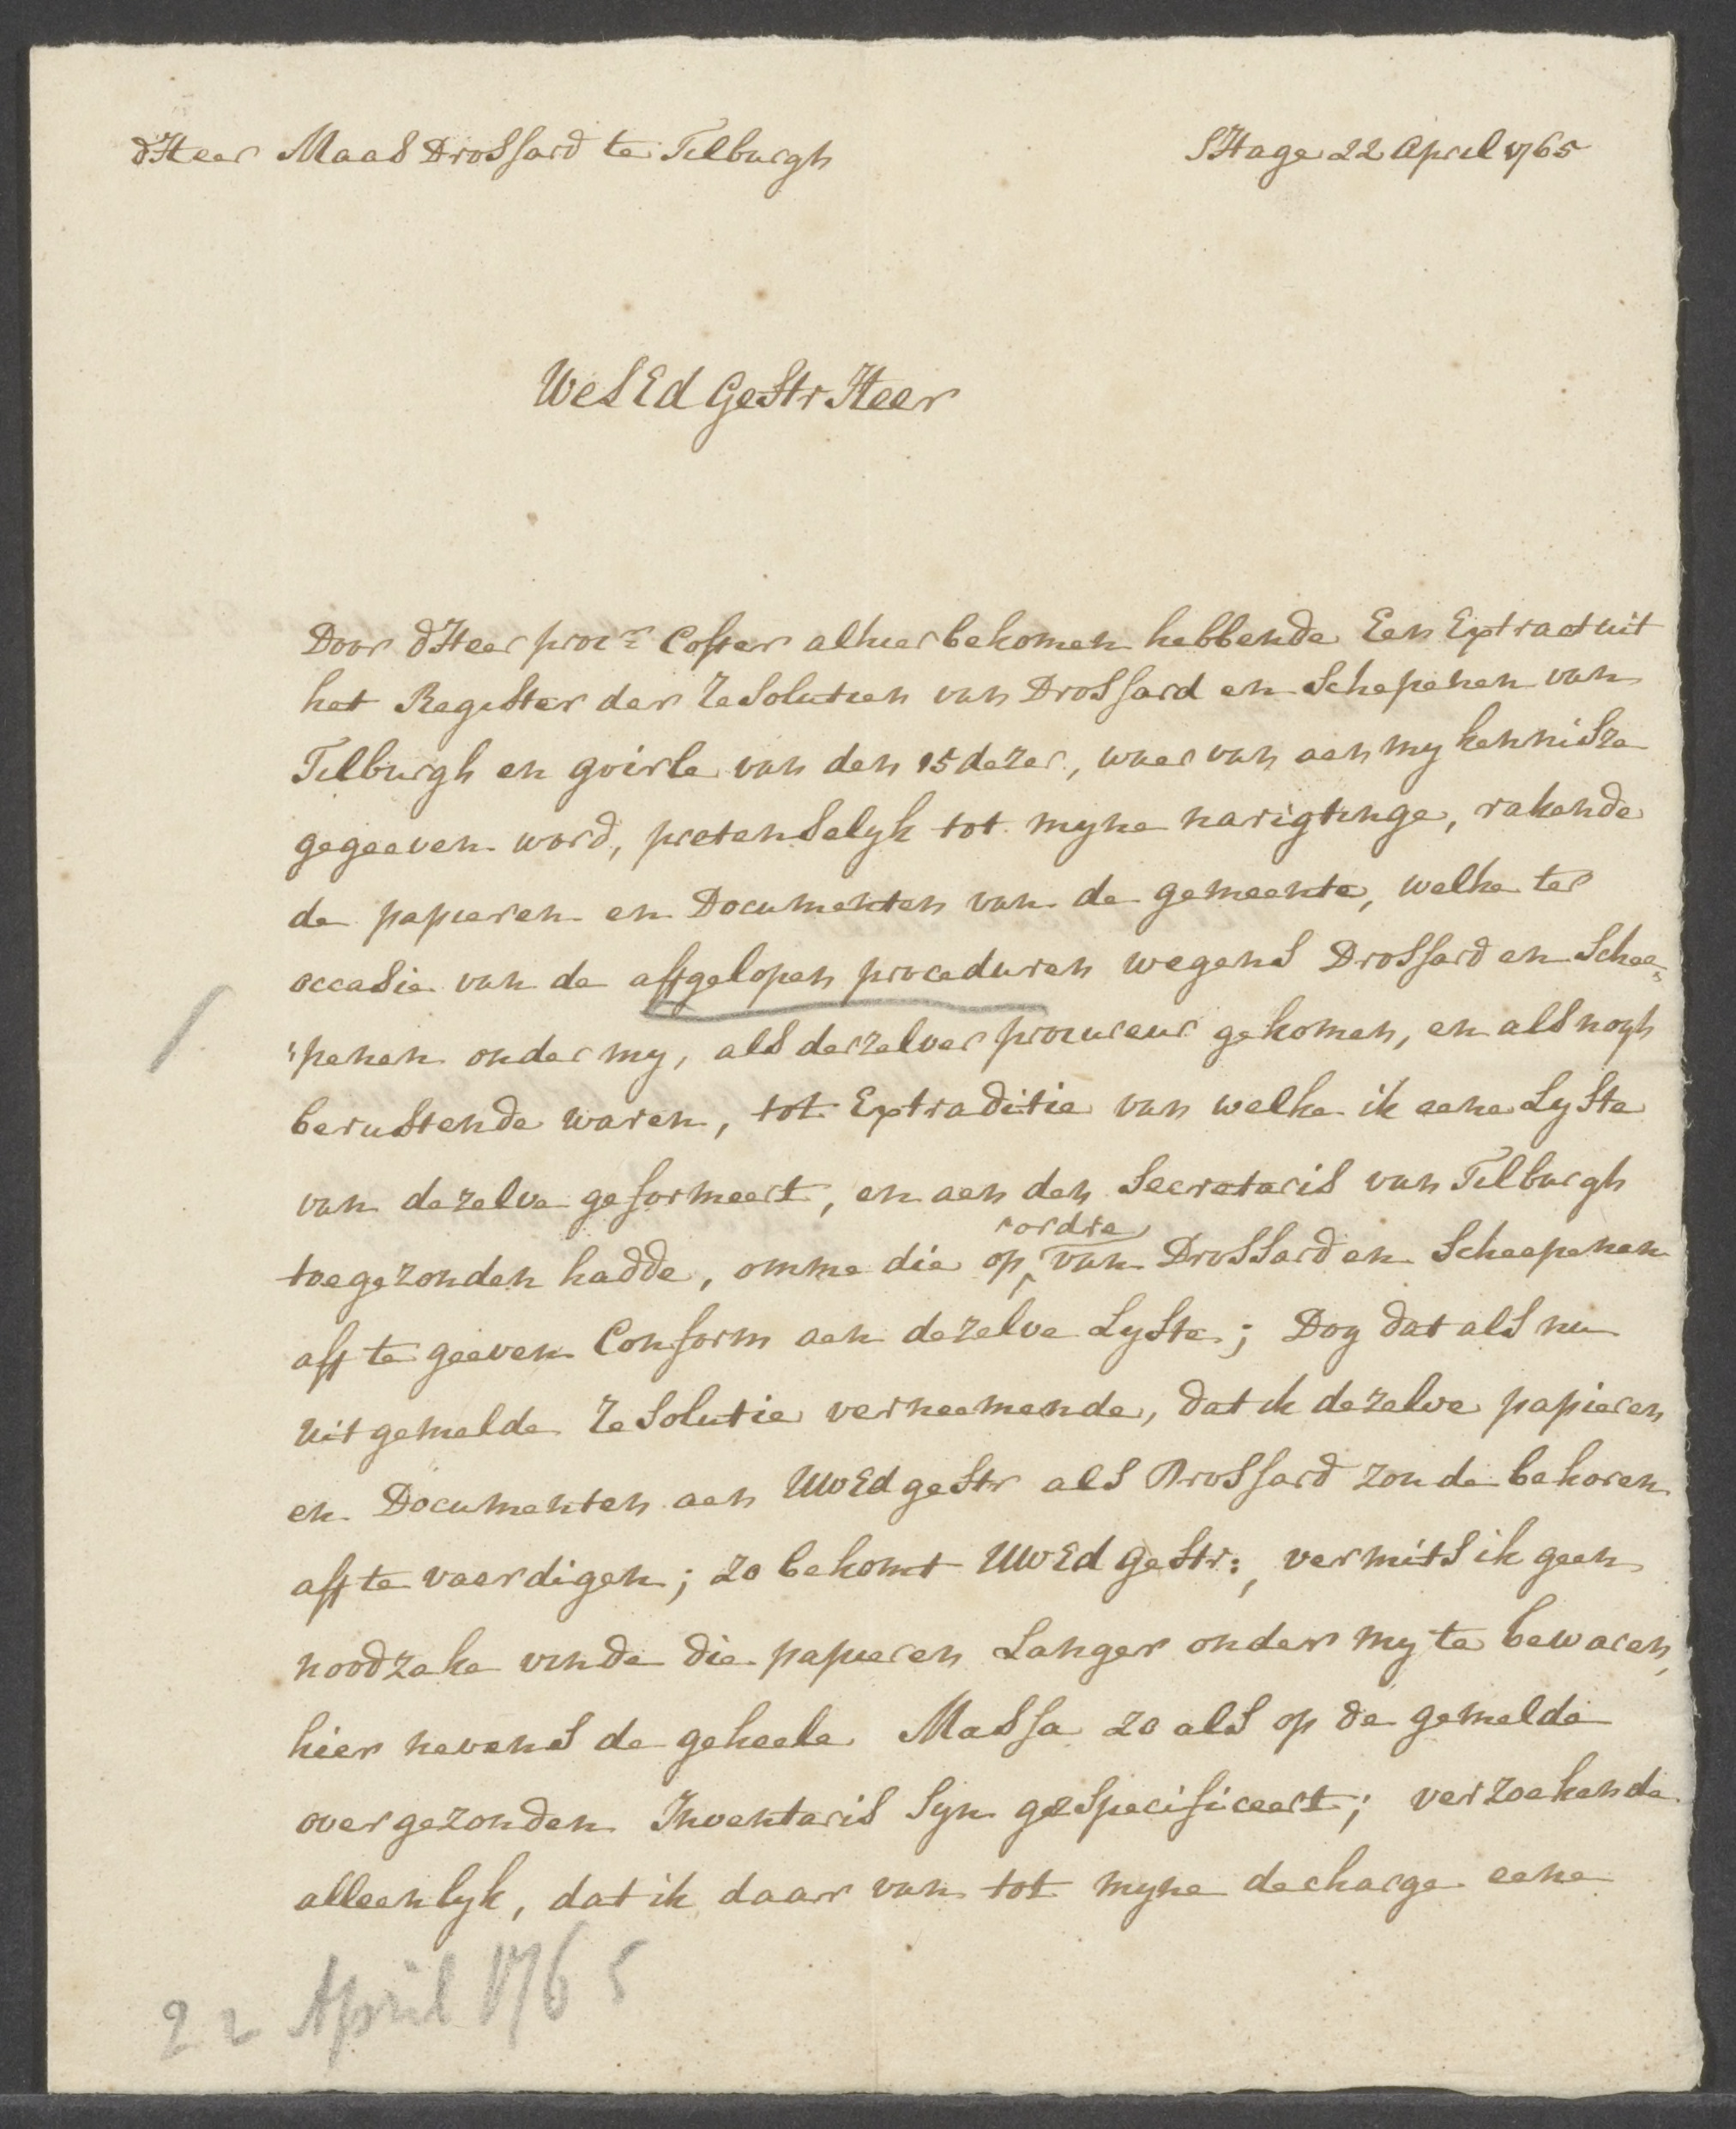 d'Heer Maas Drossard te Tilburgh
S'Hage 22 April 1765
Wel Ed Gestr Heer
Door d'Heer procr Coster alhier bekomen hebbende Een Extract uit
het Register der Resolutien van Drossard en Schepenen van
Tilburgh en goirle van den 15 dezer, waer van aen my kennisze
gegeeven word, pretenselyk tot myne narigtinge, rakende
de papieren en Documenten van de gemeente, welke ter
occasie van de affgelopen proceduren wegens Drossard en Schee„
„penen onder my, als derzelver procureur gekomen, en als nogh
berustende waren, tot Extraditie van welke ik eene Lyste
van dezelve geformeert, en aen den Secretaris van Tilburgh
toegezonden hadde, omme die op ordre van Drossard en Scheepenen
aff te geeven Conform aen dezelve Lyste; Dog dat als nu
uit gemelde Resolutie verneemende, dat ik dezelve papieren
en Documenten aen UWEd gestr als Drossard zoude behoren
aff te vaerdigen; zo bekomt UWEd gestr:, vermits ik geen
noodzake vinde die papieren Langer onder my te bewaren,
hier nevens de geheele Massa zo als op de gemelde
overgezonden Inventaris Syn gespecificeert; verzoekende
alleenlyk, dat ik daar van tot myne decharge eene
22 April 1765